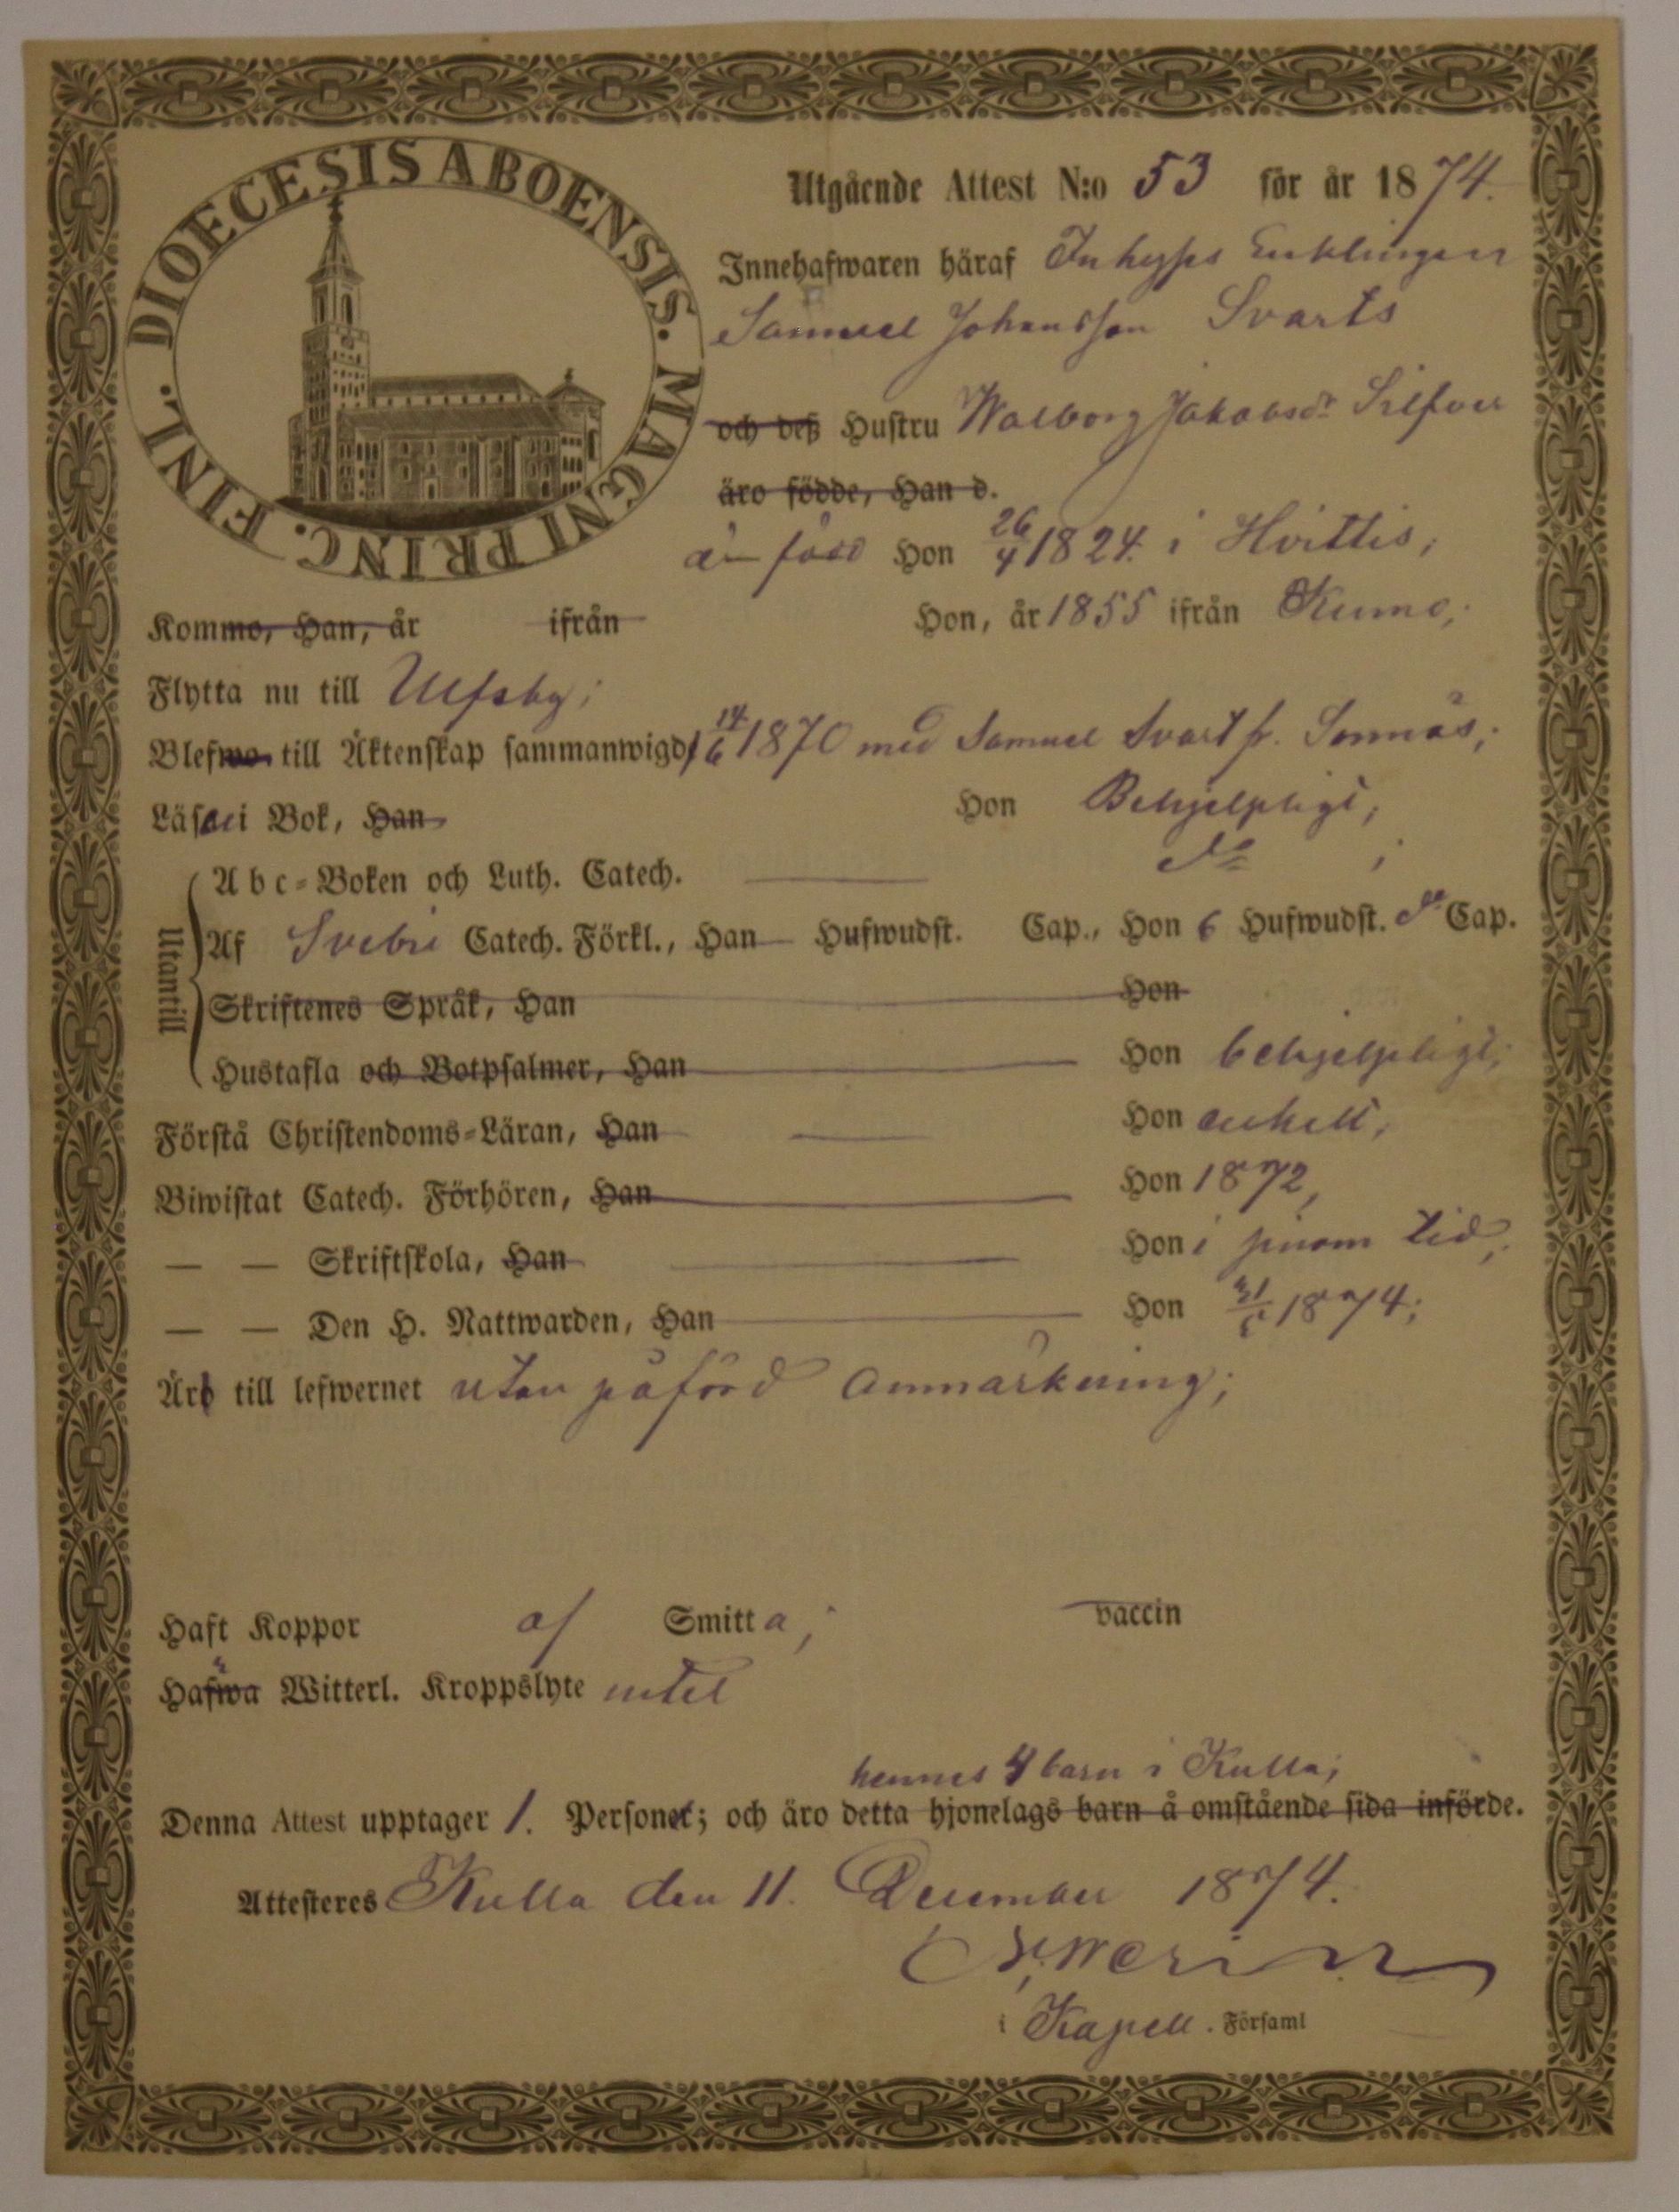 DIOECESIS ABOENSIS. MAGNI PRINC. FINL.
Utgående Attest N:o 53 för år 1874.
Innehafwaren häraf Inhyses Enklingen
Samuel Johansson Svarts
och deß Hustru Walborg Jakobsdr Silfver
äro födde, Han d.
är född Hon 26/4 1824. i Hvittis;
Kommo, Han, år ifrån Hon, år 1855 ifrån Kumo;
Flytta nu till Ulfsby;
Blefwo till Äktenskap sammanwigd 14/6 1870 med Samuel Svart fr. Sonnäs;
Läser i Bok, Han Hon Behjelpligt;
Abc-Boken och Luth. Catech. do ;
Utantill
Af Svebii Catech. Förkl., Han Hufwudst. Cap., Hon 6 Hufwudst. do Cap.
Skriftenes Språk, Han Hon
Hustafla och Botpsalmer, Han Hon behjelpligt;
Förstå Christendoms-Läran, Han Hon enkelt;
Biwistat Catech. Förhören, Han Hon 1872,
— — Skriftskola, Han Hon i sinom tid;
— — Den H. Nattwarden, Han Hon 1874;
Äro till lefwernet utan påförd anmärkning;
Haft Koppor af Smitta; vaccin
Hafwa Witterl. Kroppslyte intet
hennes 4 barn i Kulla;
Denna Attest upptager 1. Personer; och äro detta hjonelags barn å omstående sida införde.
Attesteres Kulla den 11. December 1874.
i Kapell. Församl